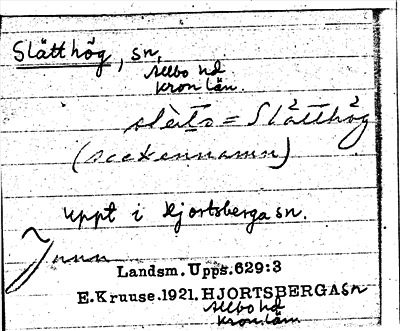 Slätthög, sn,
Allbo hd
Kron. län.
= Slätthög
(sockennamn)
Uppt i Hjortsberga sn.
Landsm. Upps. 629:3
E. Kruuse. 1921. HJORTSBERGA sn
Allbo hd
Kron. län